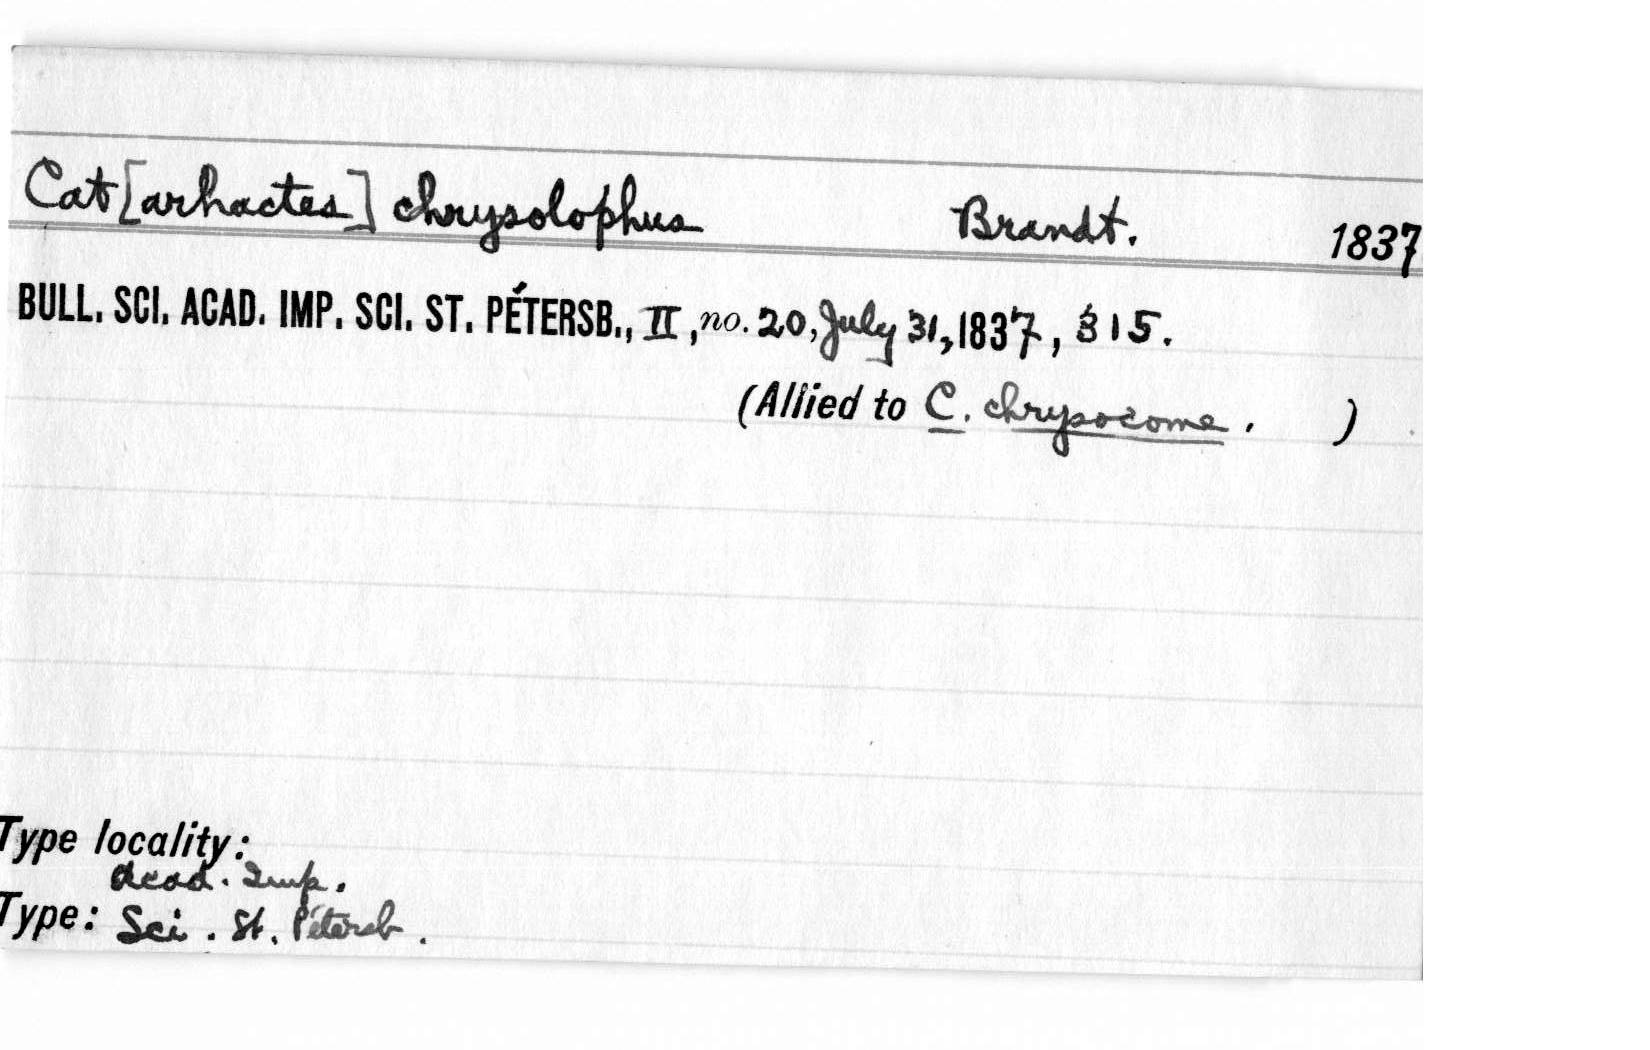 Cat[arhactes] chrysolophus Brandt. 1837
BULL. SCI. ACAD. IMP. SCI. ST. PÉTERSB., II, no. 20, July 31, 1837, 315.
(Allied to C. chrysocome. )
Type locality:
Acad. Imp.
Type: Sci. St. Pétersb.